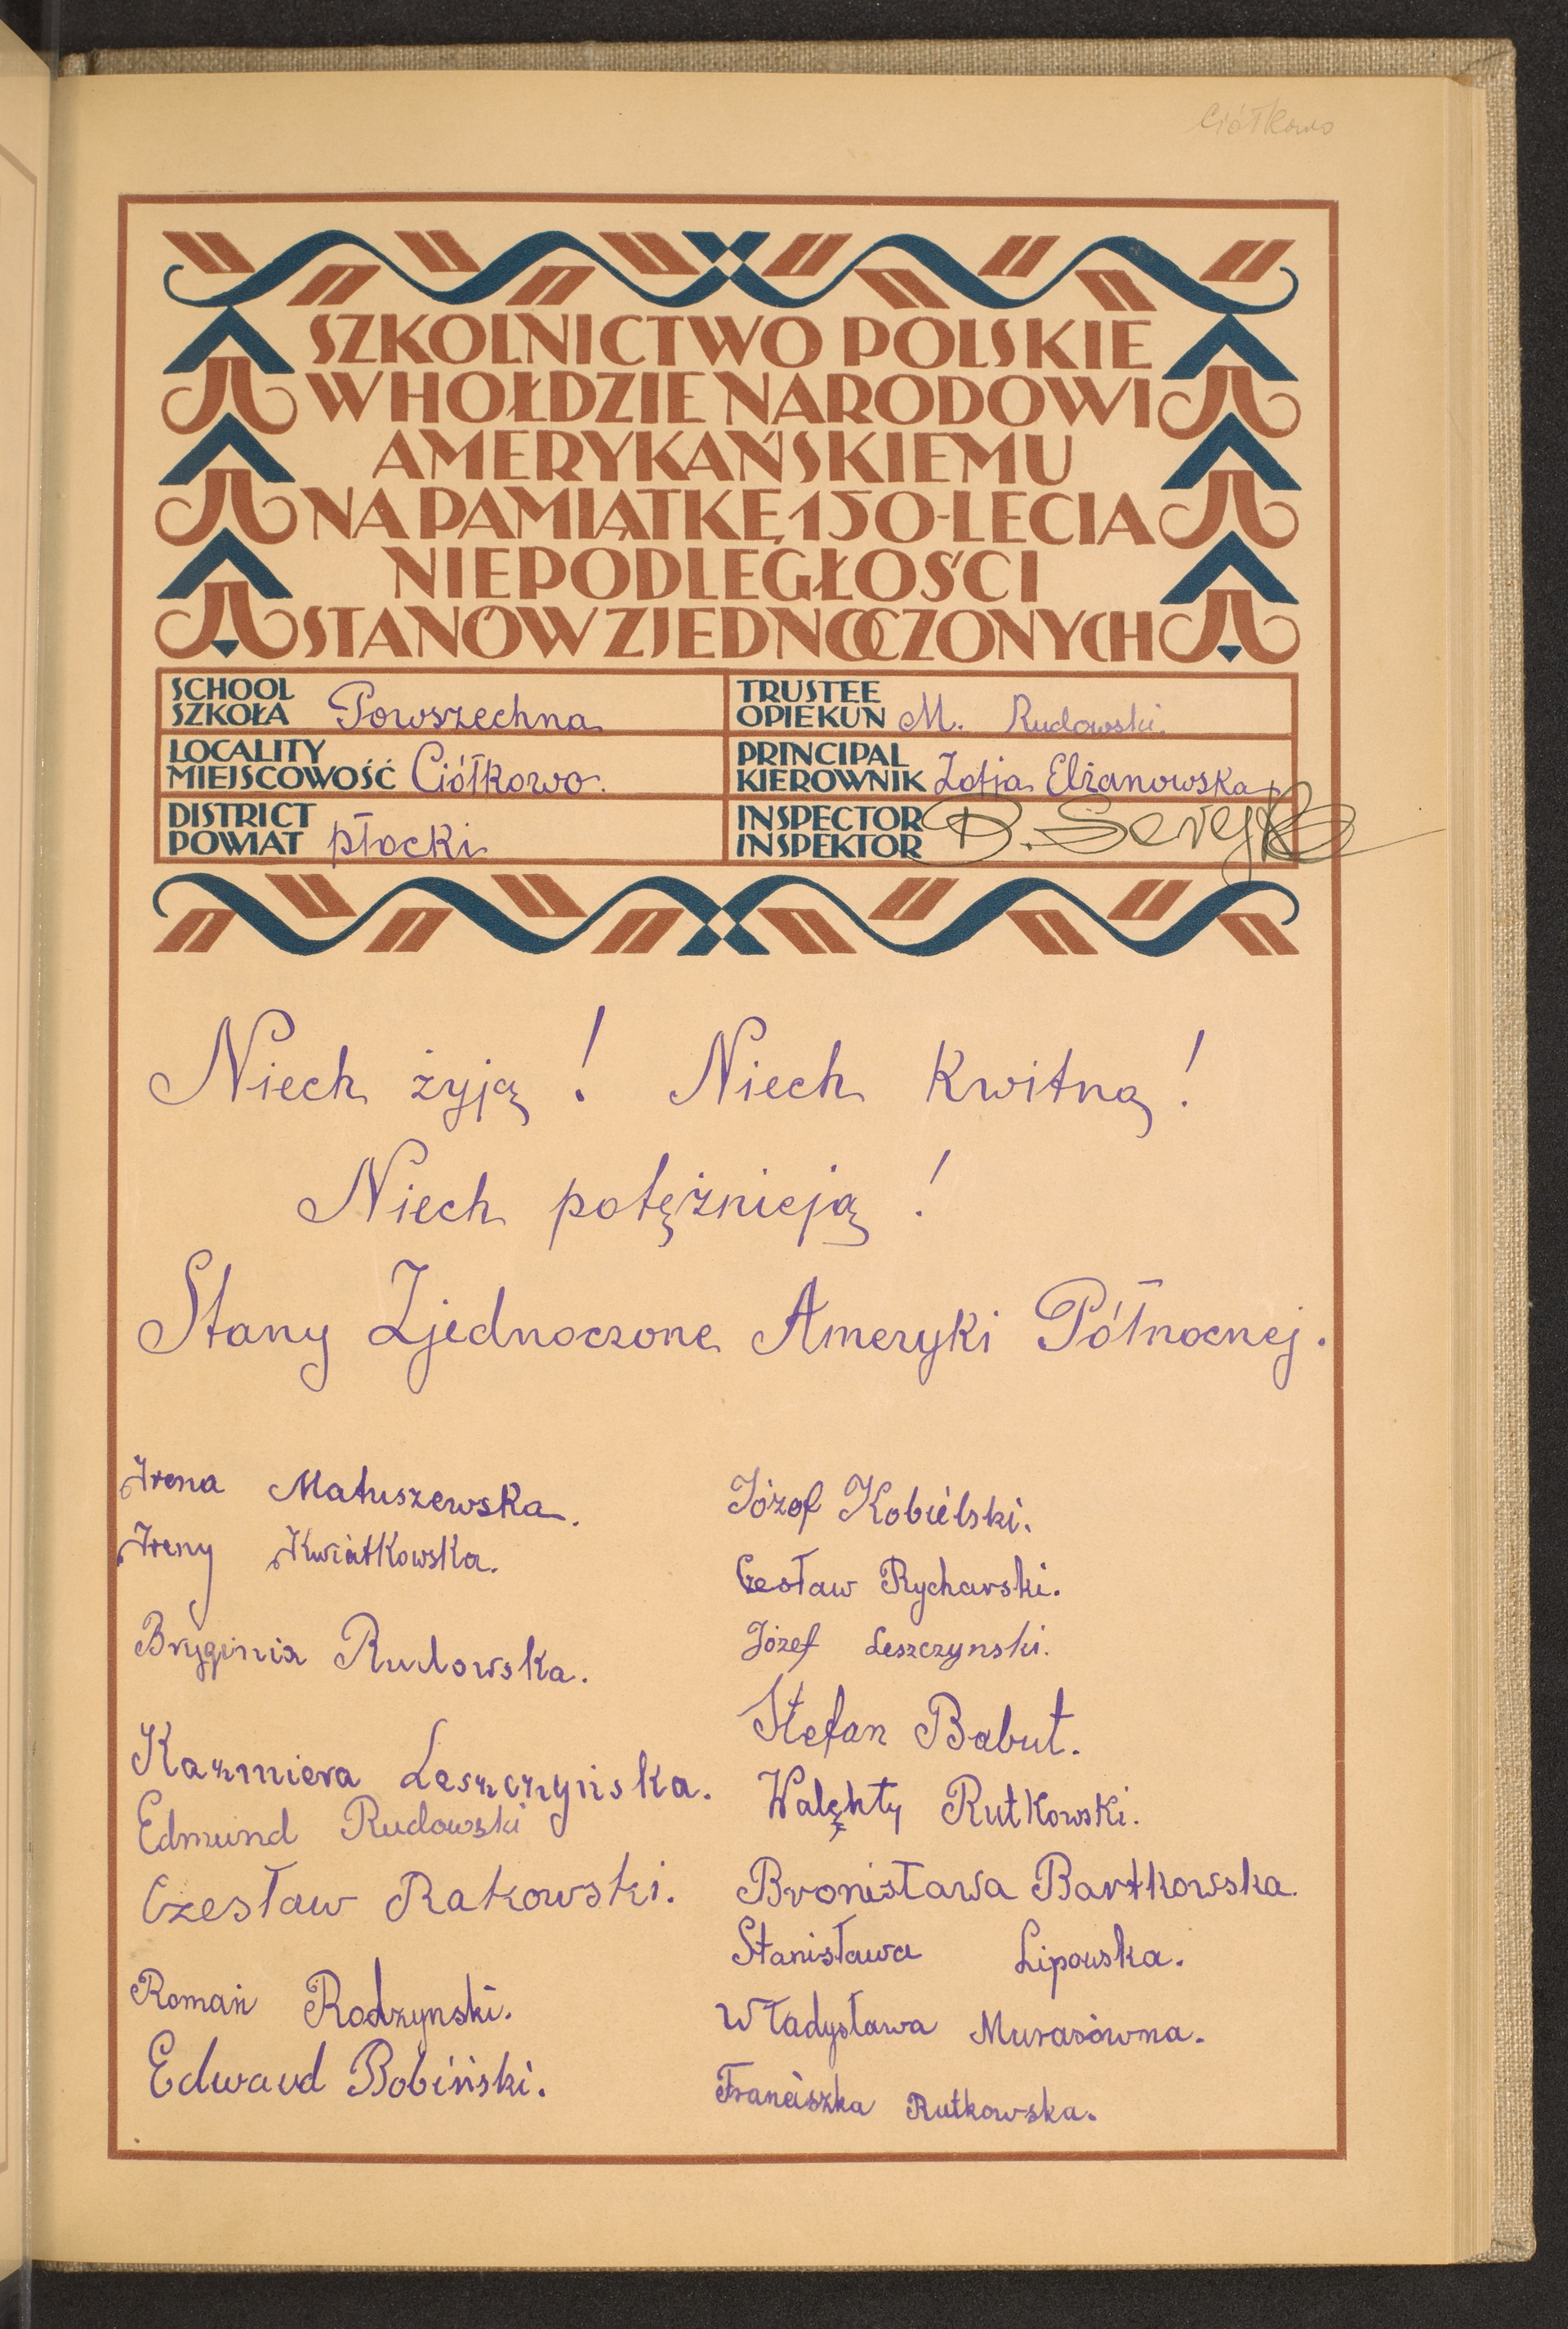 Ciółkowo
SZKOLNICTWO POLSKIE
W HOŁDZIE NARODOWI
AMERYKAŃSKIEMU
NA PAMIĄTKĘ 150-LECIA
NIEPODLEGŁOŚCI
STANÓW ZJEDNOCZONYCH
SCHOOL
SZKOŁA Powszechna
TRUSTEE
OPIEKUN M. Rudowski.
LOCALITY
MIEJSCOWOŚĆ Ciółkowo.
PRINCIPAL
KIEROWNIK Zofja Elżanowska
DISTRICT
POWIAT płocki
INSPECTOR
INSPEKTOR B.
Niech żyją! Niech kwitną!
Niech potężnieją!
Stany Zjednoczone Ameryki Północnej.
Irena Matuszewska.
Ireny Kwiatkowska.
Rudowska.
Kazmiera Leszczyńska.
Edmund Rudowski
Czesław Rakowski.
Roman Rodzynski.
Edward Bobiński.
Józef Kobielski.
Czesław Rycharski.
Józef Leszczynski.
Stefan Babut.
Walęnty Rutkowski.
Bronisława Bartkowska.
Stanisława Lipowska.
Władysława Murasówna.
Franciszka Rutkowska.